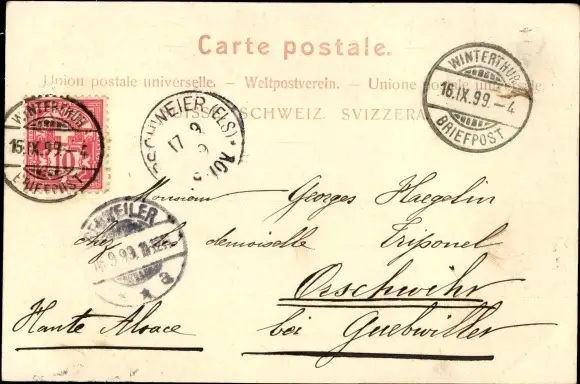 Carte postale.
Union postale universelle. — Weltpostverein. — Unione postale
SCHWEIZ. SVIZZERA
WINTERTHUR
16.IX.99.-4
BRIEFPOST
WINTERTHUR
15.IX.99.-4
BRIEFPOST
10
SCHWEIER (ELS)
17 9
WEILER
9.99
Monsieur Georges Haegelin
chez demoiselle Triponel
Orschwihr
Haute Alsace bei Guebwiller